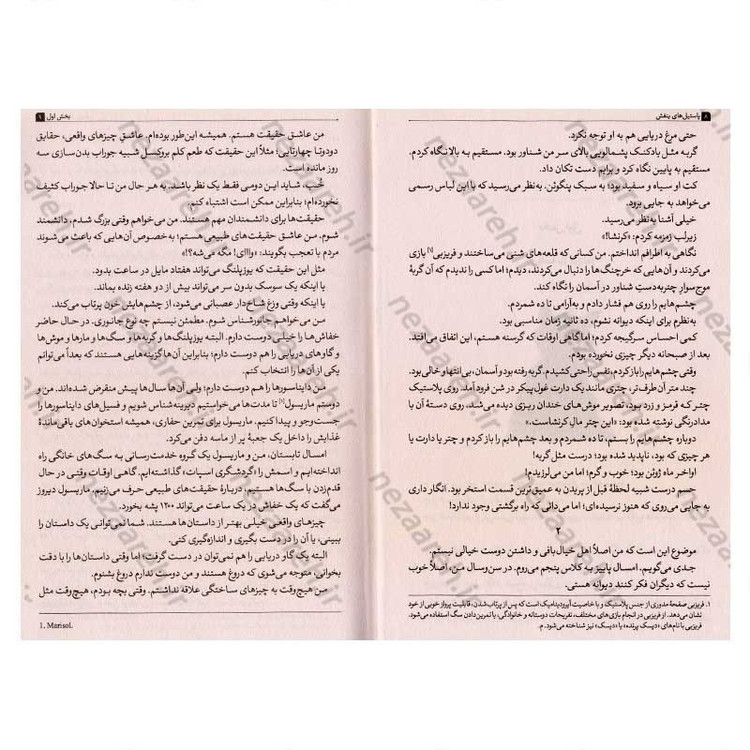 ۸ پاستیل‌های بنفش
حتی مرغ دریایی هم به او توجه نکرد.
گربه مثل بادکنک پشمالویی بالای سر من شناور بود. مستقیم به بالا نگاه کردم.
مستقیم به پایین نگاه کرد و برایم دست تکان داد.
کت او سیاه و سفید بود؛ به سبک پنگوئن. به‌نظر می‌رسید که با این لباس رسمی
می‌خواهد به جایی برود.
خیلی آشنا به‌نظر می‌رسید.
زیرلب زمزمه کردم: «کرنشا!»
نگاهی به اطرافم انداختم. من کسانی که قلعه‌های شنی می‌ساختند و فریزبی[۱] بازی
می‌کردند و آن‌هایی که خرچنگ‌ها را دنبال می‌کردند، دیدم؛ اما کسی را ندیدم که آن گربهٔ
موج‌سوارِ چتربه‌دستِ شناور در آسمان را نگاه کند.
چشم‌هایم را روی هم فشار دادم و به‌آرامی تا ده شمردم.
به‌نظرم برای اینکه دیوانه نشوم، ده ثانیه زمان مناسبی بود.
کمی احساس سرگیجه کردم؛ اما گاهی اوقات که گرسنه هستم، این اتفاق می‌افتد.
بعد از صبحانه دیگر چیزی نخورده بودم.
وقتی چشم‌هایم را باز کردم، نفس راحتی کشیدم. گربه رفته بود و آسمان، بی‌انتها و خالی بود.
چند متر آن‌طرف‌تر، چتری مانند یک دارت غول‌پیکر در شن فرود آمد. روی پلاستیک
چتر که قرمز و زرد بود، تصویر موش‌های خندان ریزی دیده می‌شد. روی دستهٔ آن با
مدادرنگی نوشته شده بود: «این چتر مال کرنشاست.»
دوباره چشم‌هایم را بستم، تا ده شمردم و بعد چشم‌هایم را باز کردم و چتر یا دارت یا
هر چیزی که بود، ناپدید شده بود؛ درست مثل گربه!
اواخر ماه ژوئن بود؛ خوب و گرم؛ اما من می‌لرزیدم!
حسم درست شبیه لحظهٔ قبل از پریدن به عمیق‌ترین قسمت استخر بود. انگار داری
به جایی می‌روی که هنوز نرسیده‌ای؛ اما می‌دانی که راه برگشتی وجود ندارد!
۲
موضوع این است که من اصلاً اهل خیال‌بافی و داشتن دوست خیالی نیستم.
جدی می‌گویم. امسال پاییز به کلاس پنجم می‌روم. در سن‌وسال من، اصلاً خوب
نیست که دیگران فکر کنند دیوانه هستی.
۱. فریزبی صفحهٔ مدوری از جنس پلاستیک و با خاصیت آیرودینامیک است که پس از پرتاب‌شدن، قابلیت پرواز خوبی از خود
نشان می‌دهد. از فریزبی در انجام بازی‌های مختلف، تفریحات دوستانه و خانوادگی، یا تمرین دادن سگ استفاده می‌شود.
فریزبی با نام‌های «دیسک پرنده» یا «دیسک» نیز شناخته می‌شود. م.
بخش اول ۹
من عاشق حقیقت هستم. همیشه این‌طور بوده‌ام. عاشقِ چیزهای واقعی، حقایق
دودوتا چهارتایی؛ مثلاً این حقیقت که طعم کلم بروکسل شبیه جوراب بدن‌سازی سه
روز مانده است.
خُب، شاید این دومی فقط یک نظر باشد. به هر حال من تا حالا جوراب کثیف
نخورده‌ام؛ بنابراین ممکن است اشتباه کنم.
حقیقت‌ها برای دانشمندان مهم هستند. من می‌خواهم وقتی بزرگ شدم، دانشمند
شوم. من عاشق حقیقت‌های طبیعی هستم؛ به‌خصوص آن‌هایی که باعث می‌شوند
مردم با تعجب بگویند: «وااای! مگه می‌شه؟!»
مثل این حقیقت که یوزپلنگ می‌تواند هفتاد مایل در ساعت بدود.
یا اینکه یک سوسک بدون سر می‌تواند بیش از دو هفته زنده بماند.
یا اینکه وقتی وزغ شاخ‌دار عصبانی می‌شود، از چشم‌هایش خون پرتاب می‌کند.
من می‌خواهم جانورشناس شوم. مطمئن نیستم چه نوع جانوری. در حال حاضر
خفاش‌ها را خیلی دوست دارم. البته یوزپلنگ‌ها و گربه‌ها و سگ‌ها و مارها و موش‌ها
و گاوهای دریایی را هم دوست دارم؛ بنابراین آن‌ها گزینه‌هایی هستند که بعداً می‌توانم
یکی از آن‌ها را انتخاب کنم.
من دایناسورها را هم دوست دارم؛ ولی آن‌ها سال‌ها پیش منقرض شده‌اند. من و
دوستم ماریسول[۱] تا مدت‌ها می‌خواستیم دیرینه‌شناس شویم و فسیل‌های دایناسورها را
جست‌وجو و پیدا کنیم. ماریسول برای تمرین حفاری، همیشه استخوان‌های باقی‌ماندهٔ
غذایش را داخل یک جعبهٔ پر از ماسه دفن می‌کرد.
امسال تابستان، من و ماریسول یک گروه خدمت‌رسانی به سگ‌های خانگی راه
انداخته‌ایم و اسمش را «گردشگری اسپات» گذاشته‌ایم. گاهی اوقات وقتی در حال
قدم‌زدن با سگ‌ها هستیم، دربارهٔ حقیقت‌های طبیعی حرف می‌زنیم. ماریسول دیروز
می‌گفت که یک خفاش در یک ساعت می‌تواند ۱۲۰۰ پشه بخورد.
چیزهای واقعی خیلی بهتر از داستان‌ها هستند. شما نمی‌توانی یک داستان را
ببینی، یا آن را در دست بگیری و اندازه‌گیری کنی.
البته یک گاو دریایی را هم نمی‌توان در دست گرفت؛ اما وقتی داستان‌ها را با دقت
بخوانی، متوجه می‌شوی که دروغ هستند و من دوست ندارم دروغ بشنوم.
من هیچ‌وقت به چیزهای ساختگی علاقه نداشتم. وقتی بچه بودم، هیچ‌وقت مثل
1. Marisol.
nezaareh.ir